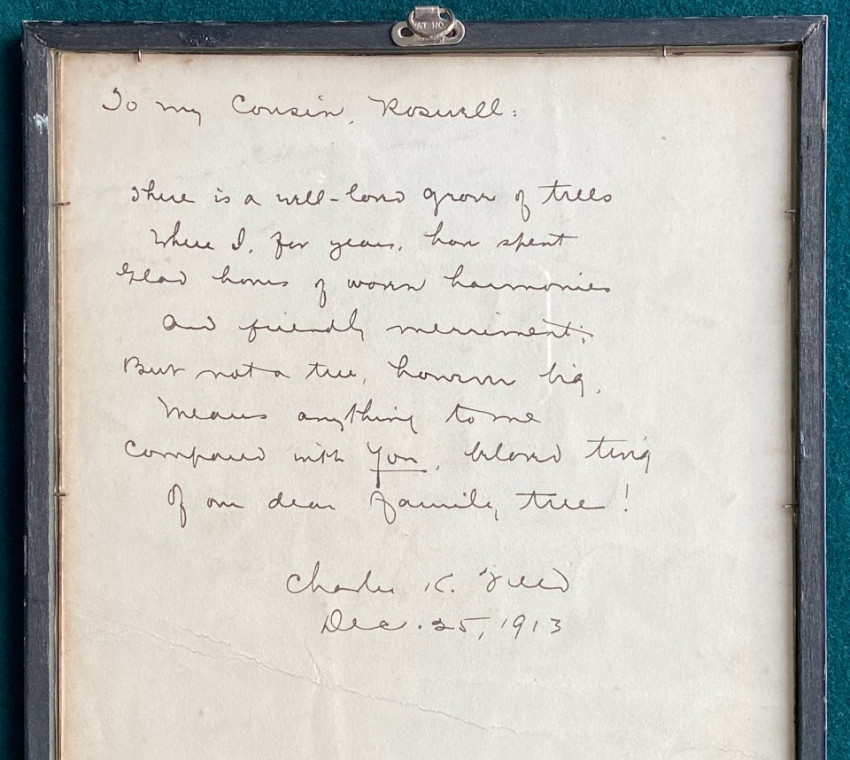 AT NO.
To my Cousin, Roswell:
There is a well-loved grove of trees
Where I, for years, have spent
Glad hours of woven harmonies
And friendly merriment;
But not a tree, however big,
Means anything to me
Compared with you, beloved twig
Of our dear family tree!
Charles K. Field
Dec. 25, 1913